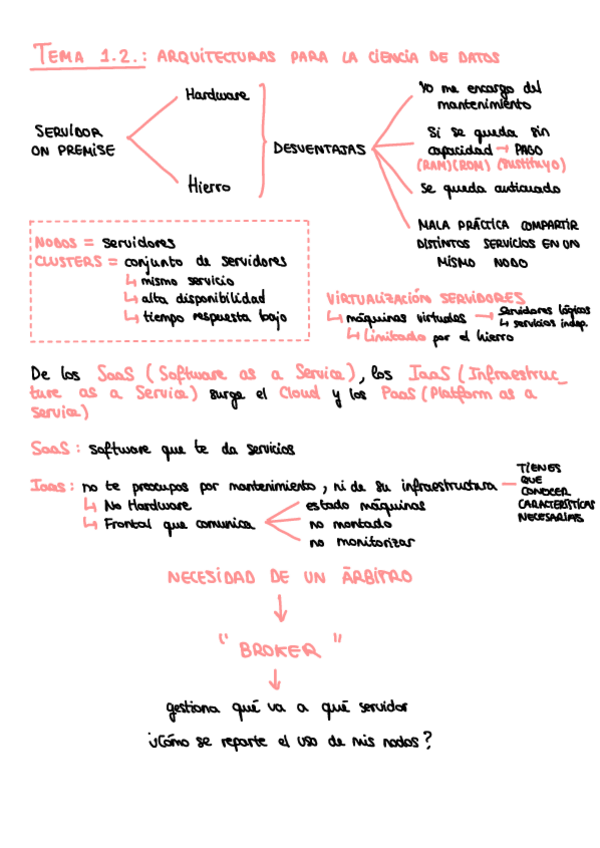 TEMA 1.2.: ARQUITECTURAS PARA LA CIENCIA DE DATOS
SERVIDOR
ON PREMISE
Hardware
Hierro
DESVENTAJAS
Yo me encargo del
mantenimiento
Si se queda sin
capacidad → PAGO
(RAM)(ROM) (sustituyo)
se queda anticuado
MALA PRÁCTICA COMPARTIR
DISTINTOS SERVICIOS EN UN
MISMO NODO
NODOS = servidores
CLUSTERS = conjunto de servidores
↳ mismo servicio
↳ alta disponibilidad
↳ tiempo respuesta bajo
VIRTUALIZACIÓN SERVIDORES
↳ máquinas virtuales → servidores lógicos
↳ servicios indep.
↳ Limitado por el hierro
De los SaaS (Software as a Service), los IaaS (Infraestruc_
ture as a Service) surge el Cloud y los PaaS (Platform as a
service)
SaaS: software que te da servicios
Iaas: no te preocupas por mantenimiento, ni de su infraestructura — TIENES
QUE
CONOCER
CARACTERÍSTICAS
NECESARIAS
↳ No Hardware
↳ Frontal que comunica
estado máquinas
no montado
no monitorizar
NECESIDAD DE UN ÁRBITRO
↓
"BROKER"
↓
gestiona qué va a qué servidor
¿Cómo se reparte el uso de mis nodos?